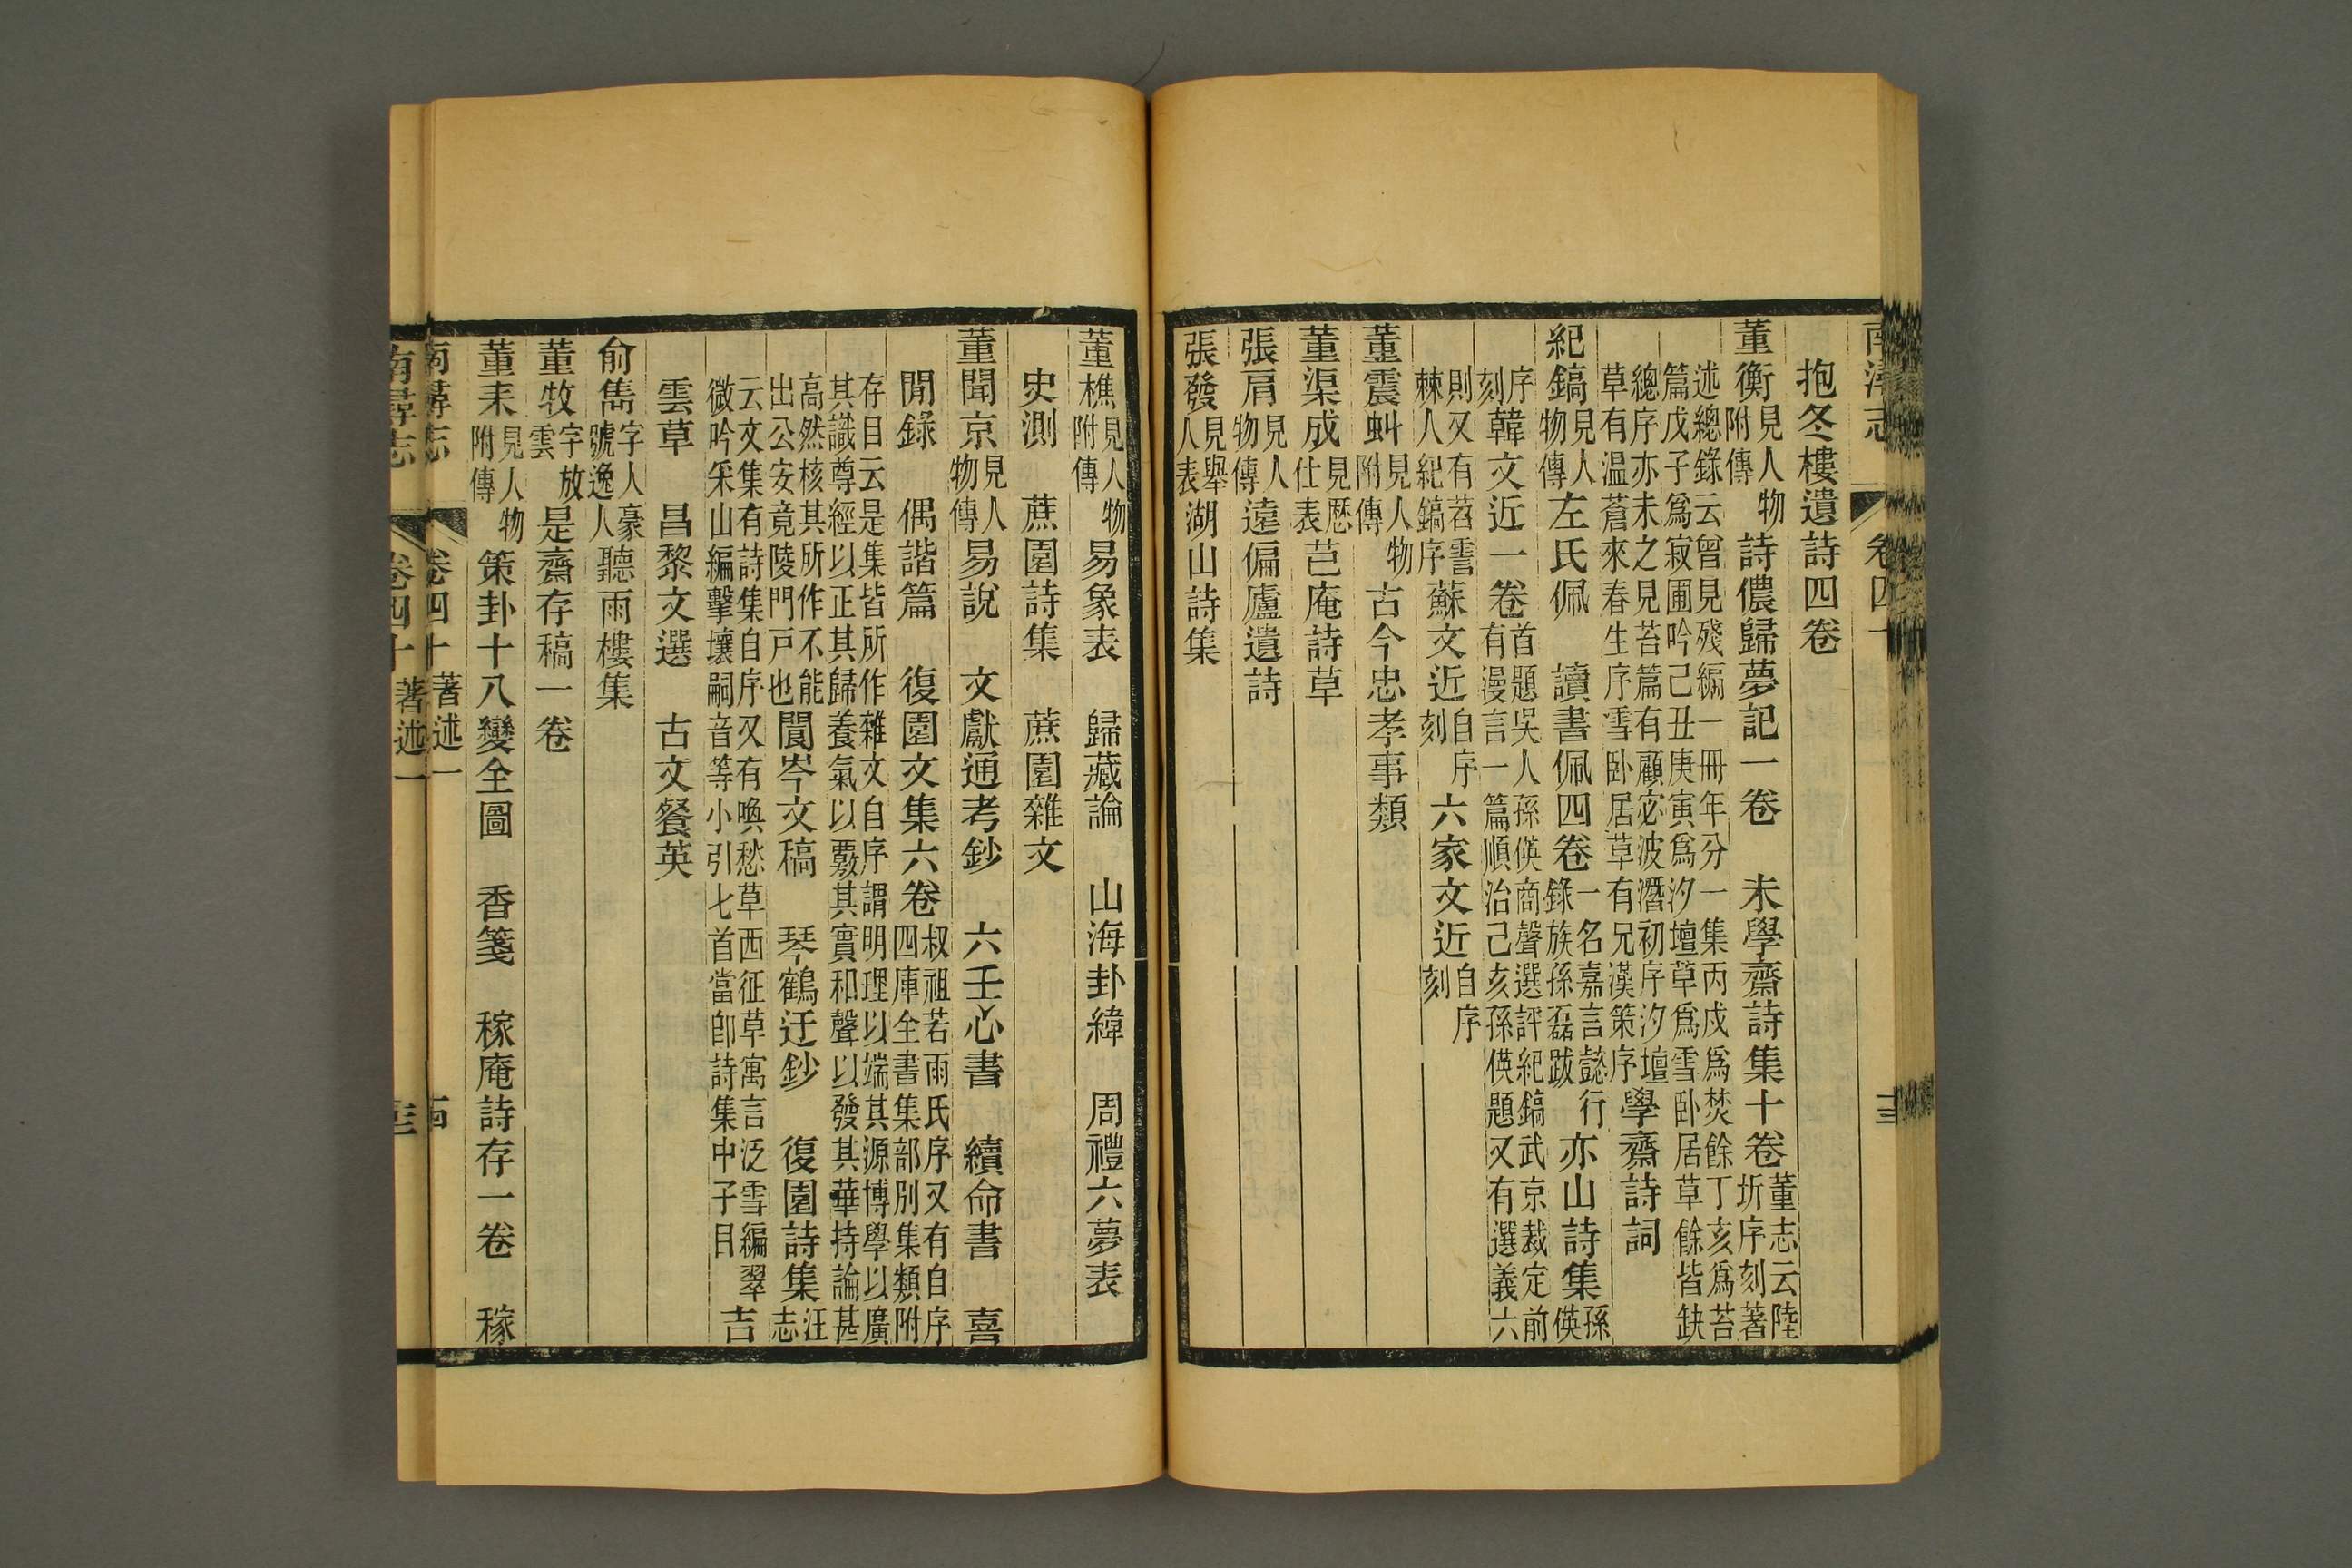 南潯志 卷四十 十三
抱冬樓遺詩四卷
董衡見人物附傳 詩儂歸夢記一卷 未學齋詩集十卷董志云陸圻序刻著
述總錄云曾見殘編一冊年分一集丙戍爲焚餘丁亥爲苔篇戊子爲寂圃吟己丑庚寅爲汐壇草爲雪卧居草餘皆缺
總序亦未之見苔篇有顧宓波潛初序汐壇草有温蒼來春生序雪卧居草有兄漢策序 學齋詩詞
紀鎬見人物傳 左氏佩 讀書佩四卷一名嘉言懿行錄族孫磊跋 亦山詩集孫偀
序刻 韓文近一卷首題吳人孫偀商聲選評紀鎬武京裁定前有漫言一篇順治己亥孫偀題又有選義六
則又有苕霅棘人紀鎬序 蘇文近自序刻 六家文近自序刻
董震虯見人物附傳 古今忠孝事類
董渠成見歷仕表 芑庵詩草
張肩見人物傳 遠偏廬遺詩
張發見舉人表 湖山詩集
董樵見人物附傳 易象表 歸藏論 山海卦緯 周禮六夢表
史測 蔗園詩集 蔗園雜文
董聞京見人物傳 易說 文獻通考鈔 六壬心書 續命書 喜
閒錄 偶諧篇 復園文集六卷叔祖若雨氏序又有自序四庫全書集部別集類附
存目云是集皆所作雜文自序謂明理以端其源博學以廣其識尊經以正其歸養氣以覈其實和聲以發其華持論甚
高然核其所作不能出公安竟陵門戸也 閬岑文稿 琴鶴迂鈔 復園詩集汪志
云文集有詩集自序又有喚愁草西征草寓言泛雪編翠微吟采山編擊壤嗣音等小引七首當卽詩集中子目 吉
雲草 昌黎文選 古文餐英
俞雋字人豪號逸人 聽雨樓集
董牧字放雲 是齋存稿一卷
董耒見人物附傳 策卦十八變全圖 香箋 稼庵詩存一卷 稼
南潯志 卷四十 著述一
南潯志 卷四十 著述一